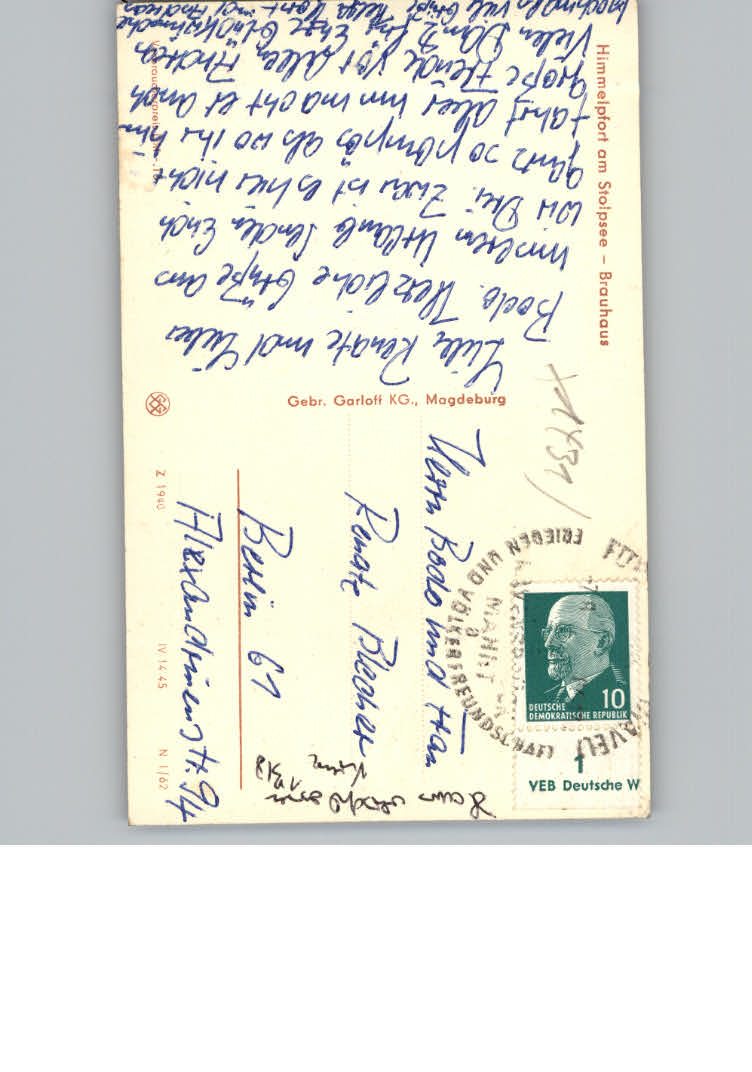 Himmelpfort am Stolpsee – Brauhaus
Liebe Renate und Lieber
Bodo. Herzliche Grüße aus
unseren Urlaub senden Euch
wir Drei. Zwar ist es hier nicht
ganz so pompös als wo ihr hin
fahrt aber uns macht es auch
große Freude. Vor allem Andrea
Vielen Dank für Eure Glückwünsche
nochmals viele Grüße Helga Horst und Andreas
Gebr. Garloff KG., Magdeburg
Z 1940
IV 14 45
N 1/62
Herrn Bodo und Frau
Renate Becher
Berlin 61
Alexandrinenstr. 94
1431
FRIEDEN UND VÖLKERFREUNDSCHAFT
10
DEUTSCHE
DEMOKRATISCHE REPUBLIK
1
VEB Deutsche W